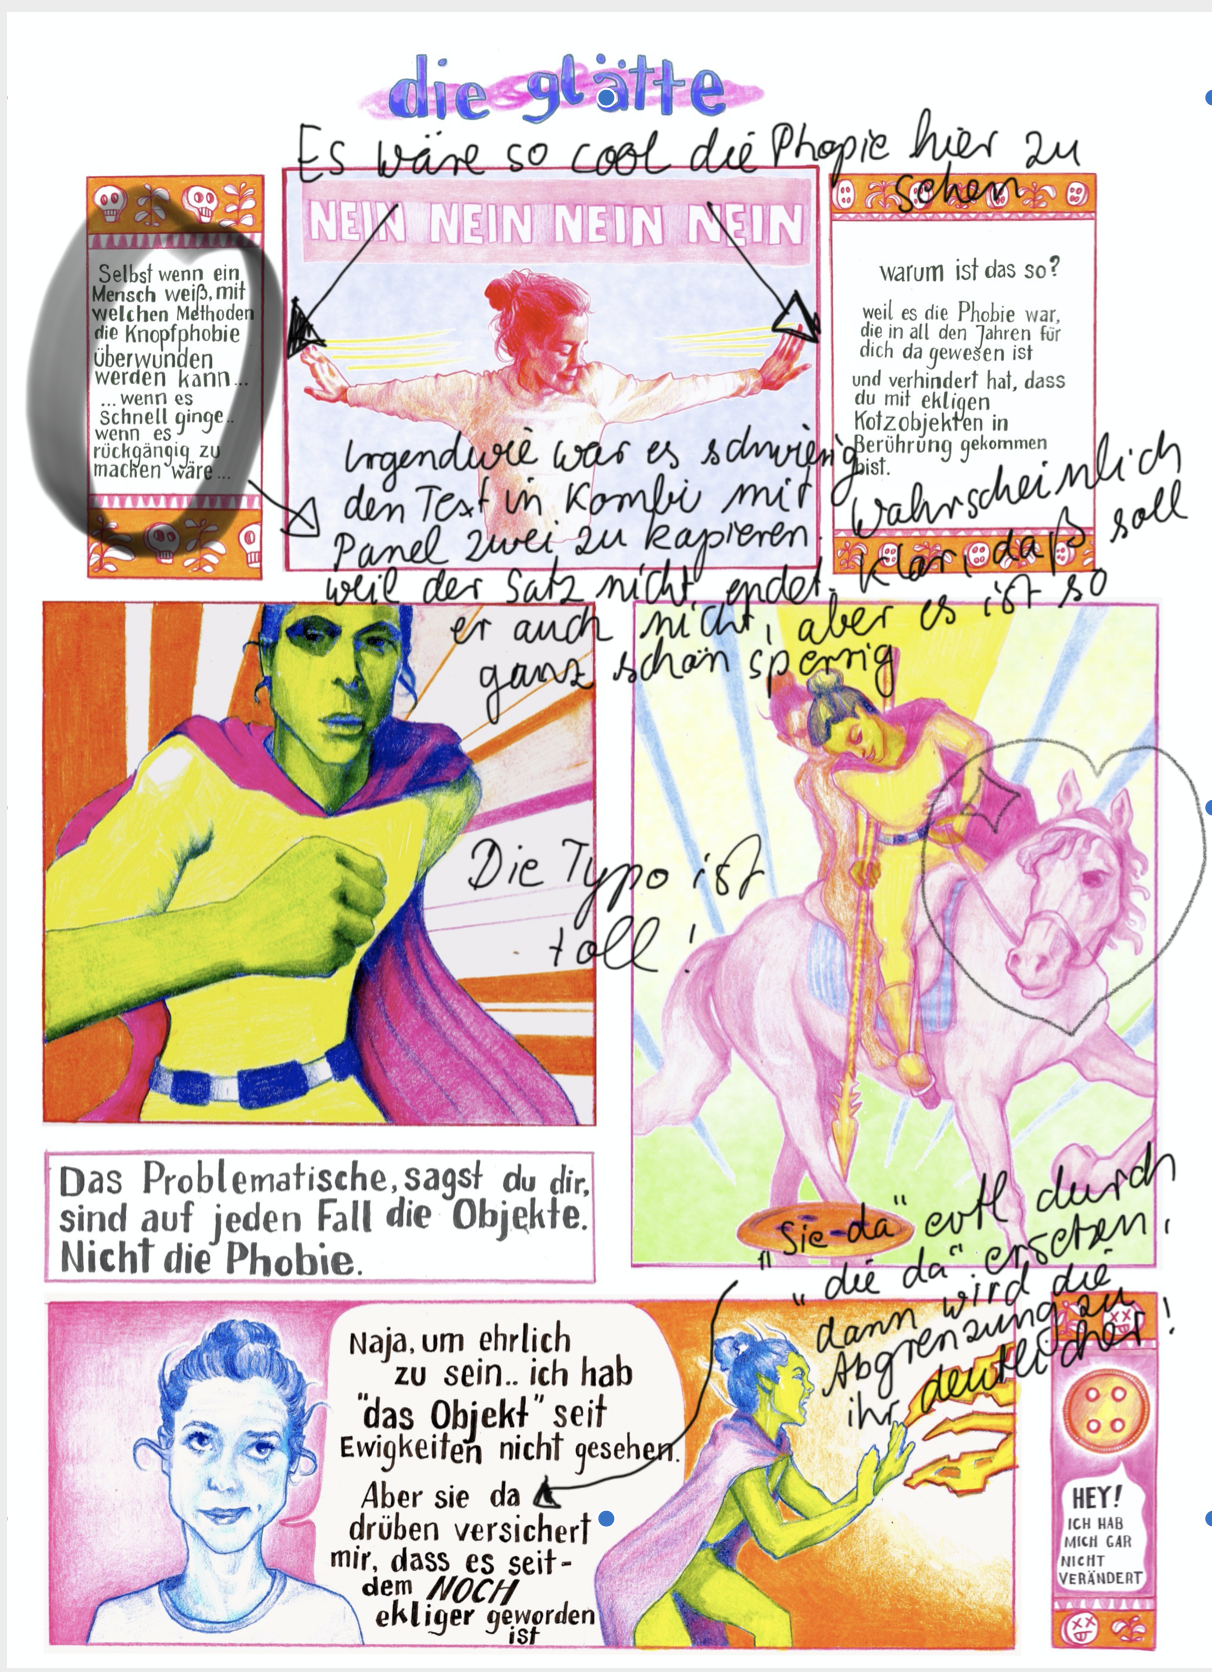 die glätte
Es wäre so cool die Phopie hier zu
sehen
NEIN NEIN NEIN NEIN
Selbst wenn ein
Mensch weiß, mit
welchen Methoden
die Knopfphobie
überwunden
werden kann...
...wenn es
Schnell ginge..
wenn es
rückgängig zu
machen wäre...
warum ist das so?
weil es die Phobie war,
die in all den Jahren für
dich da gewesen ist
und verhindert hat, dass
du mit ekligen
Kotzobjekten in
Berührung gekommen
bist.
Irgendwie war es schwierig
den Text in Kombi mit
Panel zwei zu kapieren
weil der Satz nicht endet. Wahrscheinlich
klar, daß soll
er auch nicht, aber es ist so
ganz schön sperrig
Die Typo ist
toll!
Das Problematische, sagst du dir,
sind auf jeden Fall die Objekte.
Nicht die Phobie.
"Sie da" evtl durch
"die da" ersetzen,
dann wird die
Abgrenzung zu
ihr deutlicher!
Naja, um ehrlich
zu sein.. ich hab
"das Objekt" seit
Ewigkeiten nicht gesehen.
Aber sie da
drüben versichert
mir, dass es seit-
dem NOCH
ekliger geworden
ist
HEY!
ICH HAB
MICH GAR
NICHT
VERÄNDERT